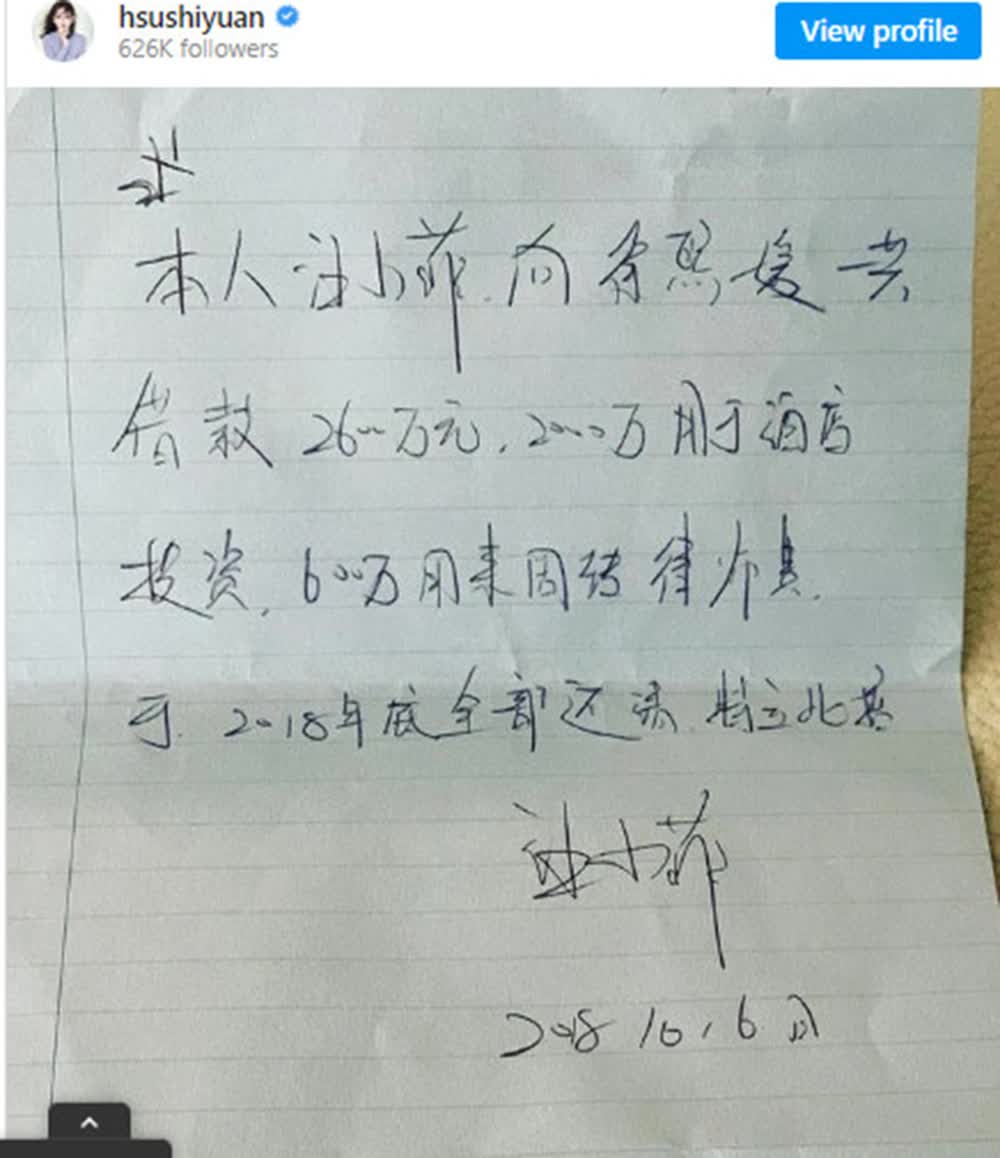 hsushiyuan
626K followers
View profile
本人汪小菲.向徐熙媛共
借款2600万元,2000万用于酒店
投资,600万用来周转律师费.
于.2018年底全部还清.特立此据
汪小菲
2018 10.6日